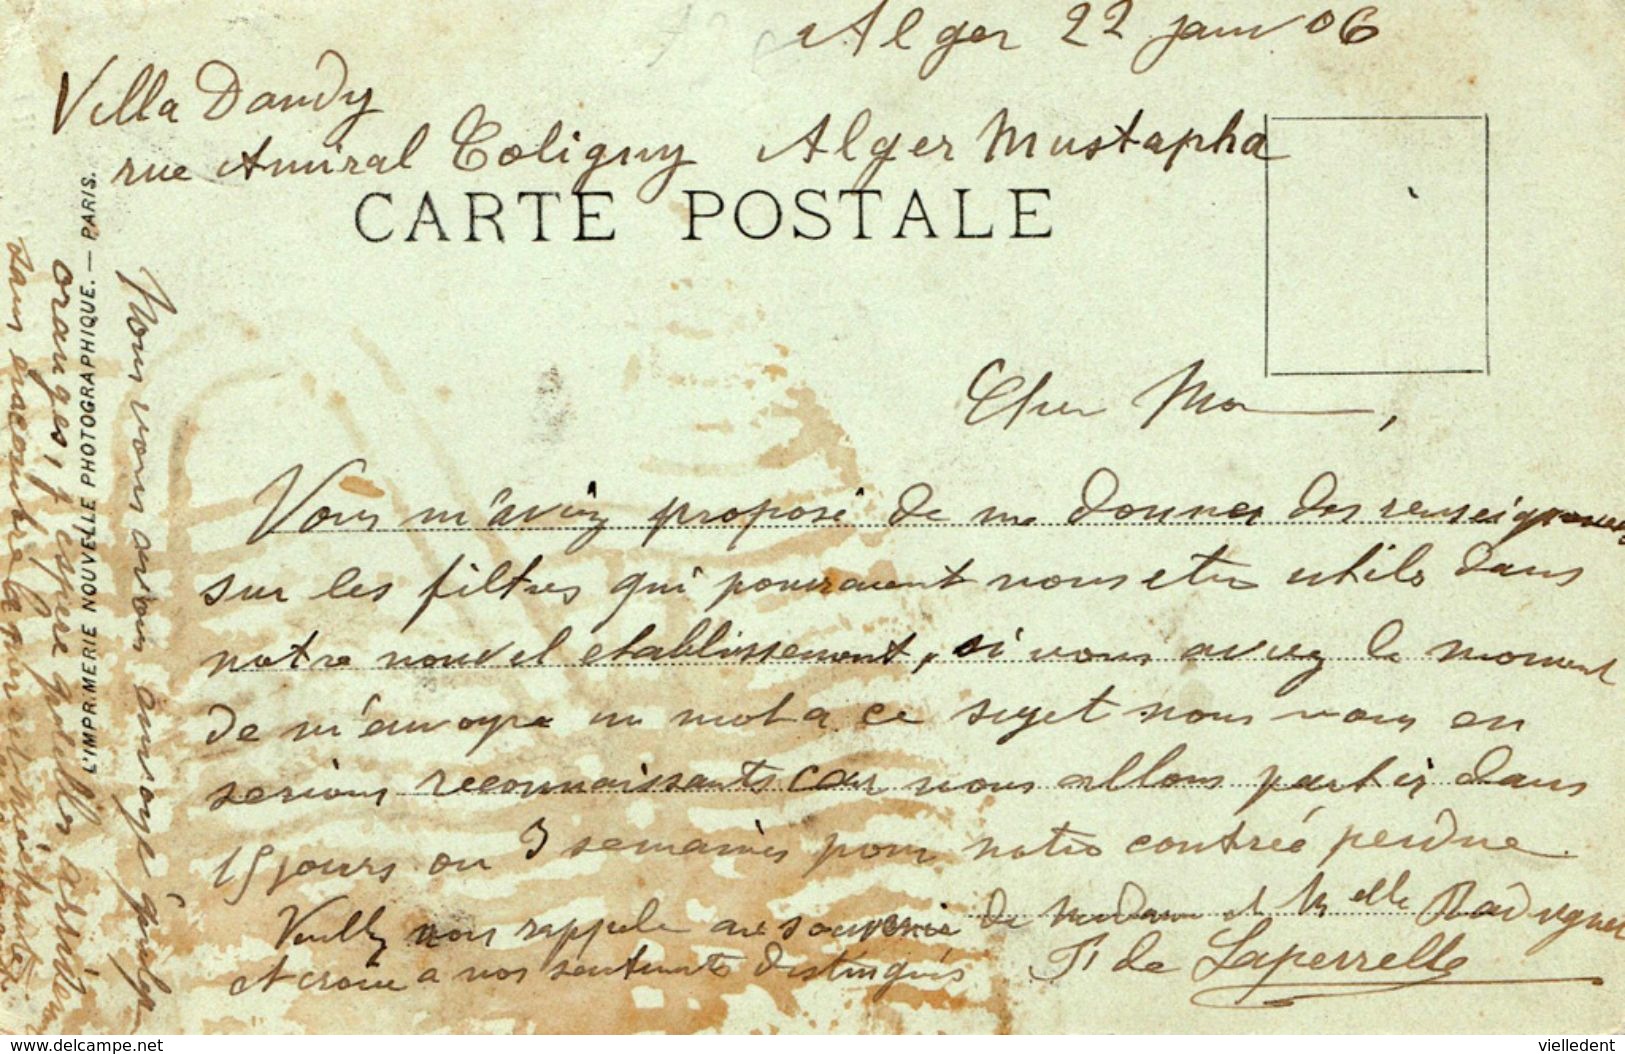 Alger 22 janv 06
Villa Dandy
rue Amiral Coligny Alger Mustapha
CARTE POSTALE
Cher Mon,
Vous m'aviez proposé de me donner des renseignements
sur les filtres qui pourraient nous etre utiles dans
notre nouvel etablissement, si vous aviez le moment
de m'envoyer un mot a ce sujet nous vous en
serions reconnaissants car nous allons partir dans
15 jours ou 3 semaines pour notre contrée perdue.
Veuillez nous rappeler au souvenir de Madame et Melle
et croire a nos sentiments distingués F de Laperrelle
Nous vous avons envoyé quelques
oranges, j'espere qu'elles arrivent
sans encombre
L'IMPRIMERIE NOUVELLE PHOTOGRAPHIQUE. — PARIS.
www.delcampe.net
vielledent